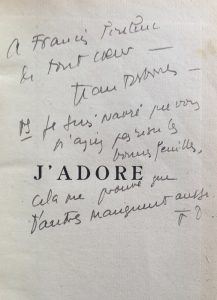 A Francis Poulenc
de tout cœur —
Jean Desbordes —
PS Je suis navré que vous
n'ayez pas reçu les
bonnes feuilles,
J'ADORE
cela me prouve que
d'autres manquent aussi